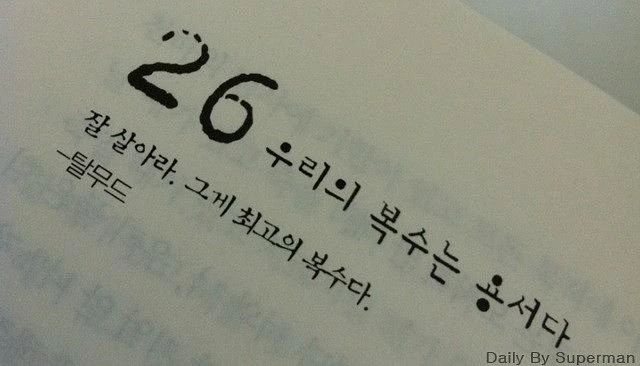 26 우리의 복수는 용서다
잘 살아라. 그게 최고의 복수다.
-탈무드
Daily By Superman